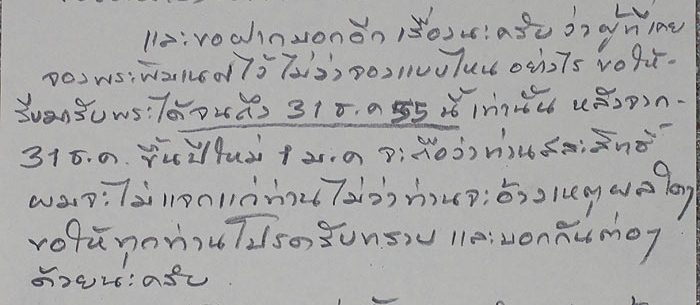 และขอฝากบอกอีกเรื่องนะครับ ว่าผู้ที่เคย
จองพระพิฆเนศไว้ ไม่ว่าจองแบบไหน อย่างไร ขอให้-
รีบมารับพระได้จนถึง 31 ธ.ค 55 นี้ เท่านั้น หลังจาก-
31 ธ.ค. ขึ้นปีใหม่ 1 ม.ค จะถือว่าท่านสละสิทธิ์
ผมจะไม่แจกแก่ท่านไม่ว่าท่านจะอ้างเหตุผลใดๆ
ขอให้ทุกท่านโปรดรับทราบ และบอกกันต่อๆ
ด้วยนะครับ